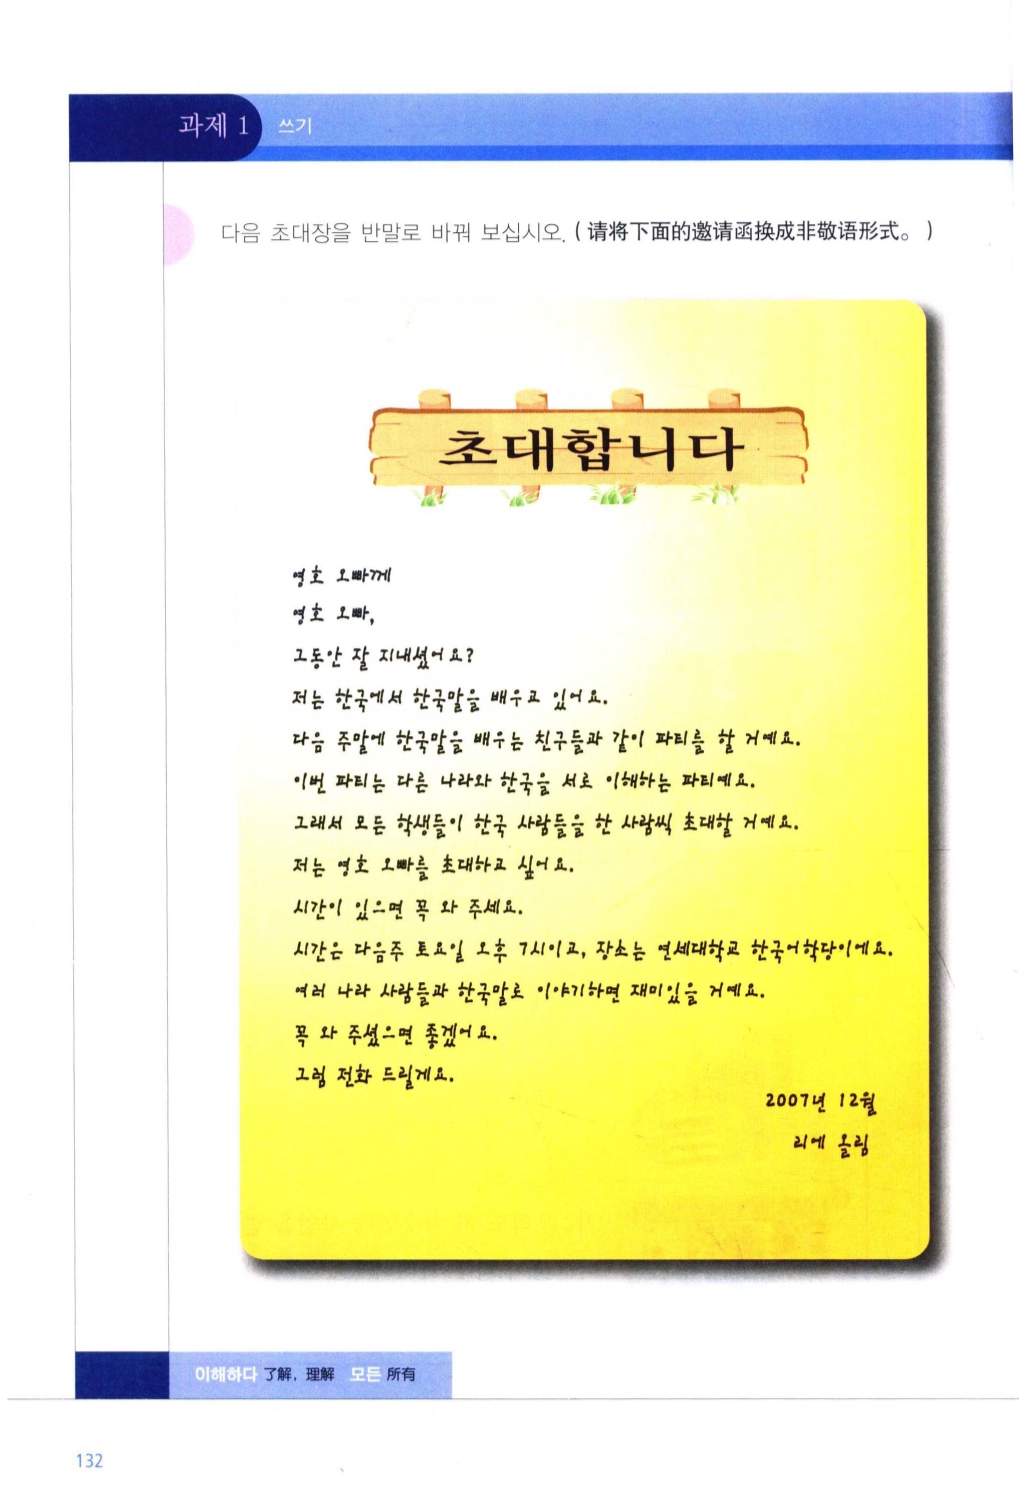 과제 1 쓰기
다음 초대장을 반말로 바꿔 보십시오. ( 请将下面的邀请函换成非敬语形式。 )
초대합니다
영호 오빠께
영호 오빠,
그동안 잘 지내셨어요?
저는 한국에서 한국말을 배우고 있어요.
다음 주말에 한국말을 배우는 친구들과 같이 파티를 할 거예요.
이번 파티는 다른 나라와 한국을 서로 이해하는 파티예요.
그래서 모든 학생들이 한국 사람들을 한 사람씩 초대할 거예요.
저는 영호 오빠를 초대하고 싶어요.
시간이 있으면 꼭 와 주세요.
시간은 다음주 토요일 오후 7시이고, 장소는 연세대학교 한국어학당이에요.
여러 나라 사람들과 한국말로 이야기하면 재미있을 거예요.
꼭 와 주셨으면 좋겠어요.
그럼 전화 드릴게요.
2007년 12월
리에 올림
이해하다 了解，理解 모든 所有
132